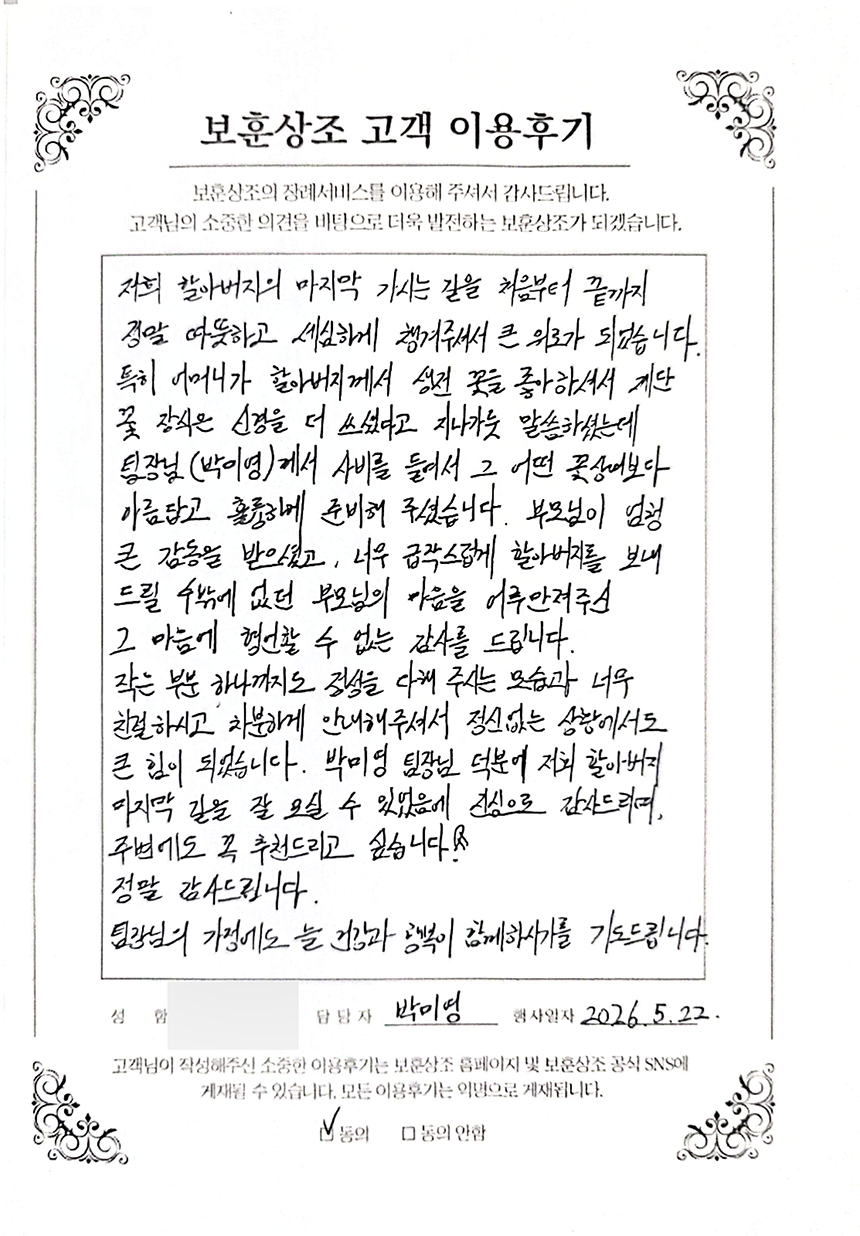 보훈상조 고객 이용후기
보훈상조의 장례서비스를 이용해 주셔서 감사드립니다.
고객님의 소중한 의견을 바탕으로 더욱 발전하는 보훈상조가 되겠습니다.
저희 할아버지의 마지막 가시는 길을 처음부터 끝까지
정말 따뜻하고 세심하게 챙겨주셔서 큰 위로가 되었습니다.
특히 어머니가 할아버지께서 생전 꽃을 좋아하셔서 제단
꽃 장식은 신경을 더 쓰셨다고 지나가듯 말씀하셨는데
팀장님(박미영)께서 사비를 들여서 그 어떤 꽃상여보다
아름답고 훌륭하게 준비해 주셨습니다. 부모님이 엄청
큰 감동을 받으셨고, 너무 급작스럽게 할아버지를 보내
드릴 수밖에 없던 부모님의 마음을 어루만져주신
그 마음에 형언할 수 없는 감사를 드립니다.
작은 부분 하나까지도 정성을 다해 주시는 모습과 너무
친절하시고 차분하게 안내해주셔서 정신없는 상황에서도
큰 힘이 되었습니다. 박미영 팀장님 덕분에 저희 할아버지
마지막 길을 잘 모실 수 있었음에 진심으로 감사드리며,
주변에도 꼭 추천드리고 싶습니다!
정말 감사드립니다.
팀장님의 가정에도 늘 건강과 행복이 함께하시기를 기도드립니다.
성 함 담당자 박미영 행사일자 2026.5.22.
고객님이 작성해주신 소중한 이용후기는 보훈상조 홈페이지 및 보훈상조 공식 SNS에
게재될 수 있습니다. 모든 이용후기는 익명으로 게재됩니다.
동의 동의 안함